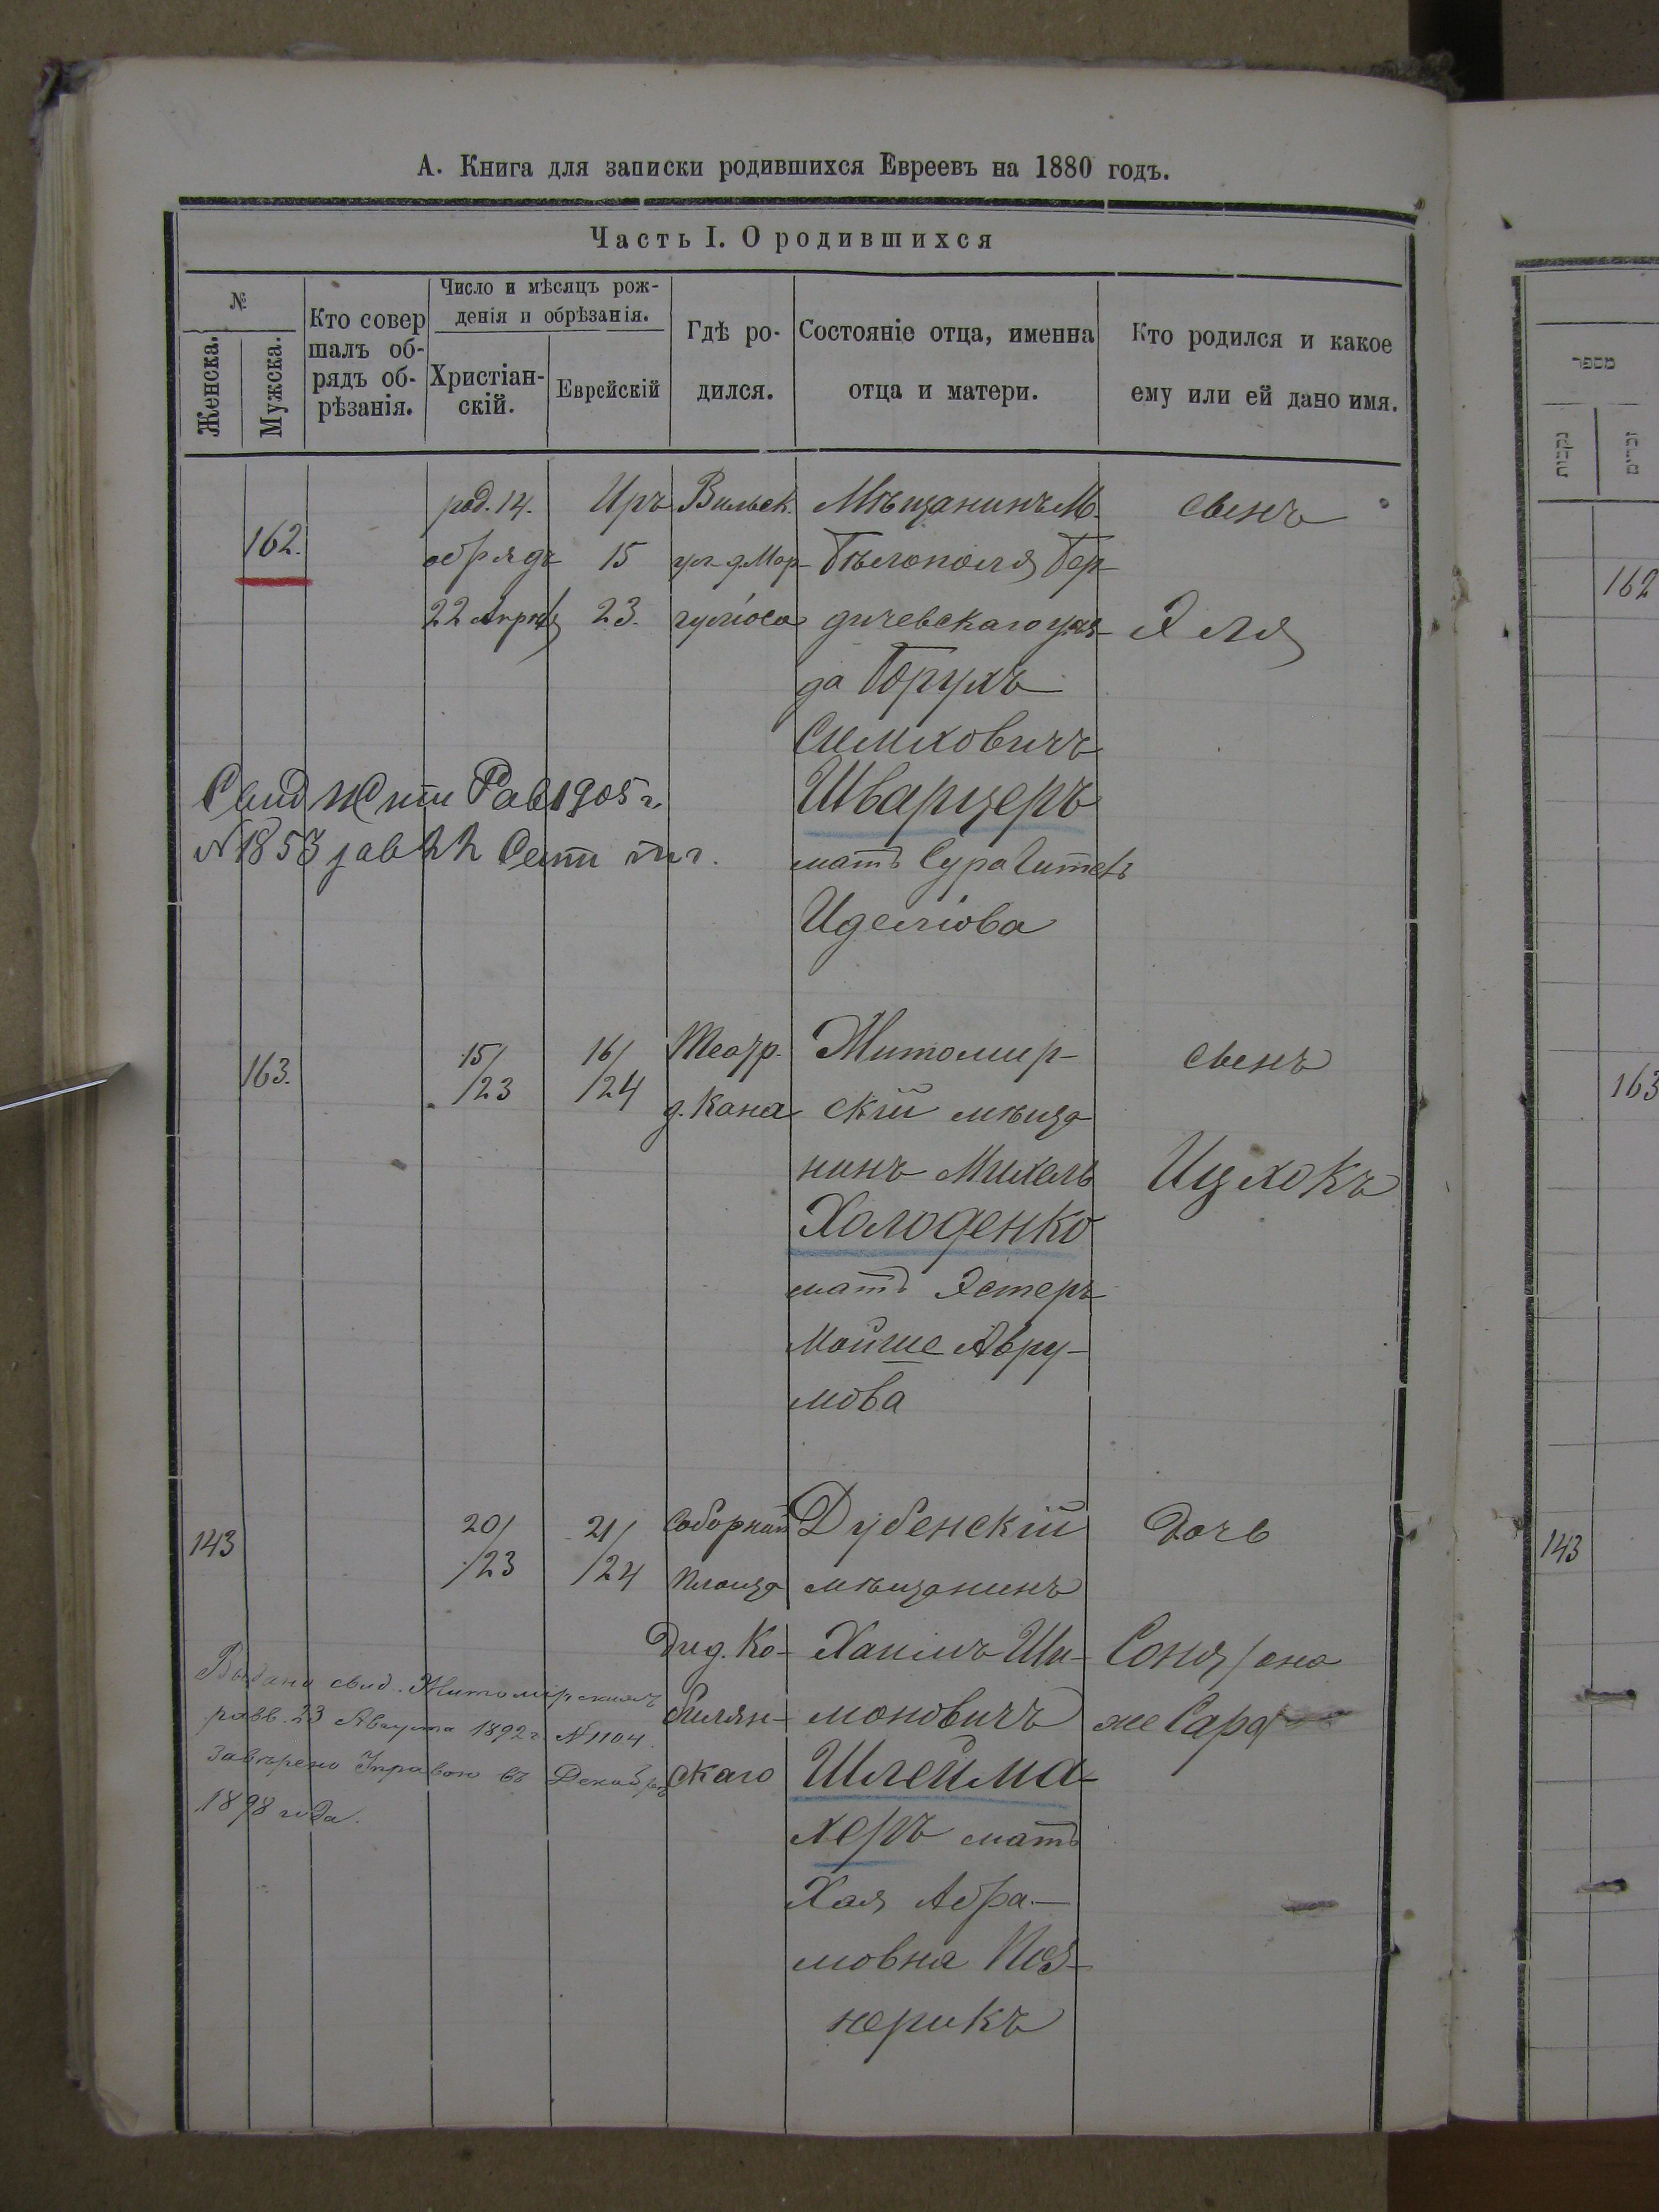 А. Книга для записки родившихся Евреевъ на 1880 годъ.
Часть I. О родившихся
№
Женска.
Мужска.
Кто совер
шалъ об-
рядъ об-
рѣзанія.
Число и мѣсяцъ рож-
денія и обрѣзанія.
Христіан-
скій.
Еврейскій
Гдѣ ро-
дился.
Состояніе отца, именна
отца и матери.
Кто родился и какое
ему или ей дано имя.
162.
род. 14.
обрядъ
22 Апрѣля
Иръ
15
23.
Вильск.
ул. д. Мар-
гуліоса
Мѣщанинъ М.
Бѣлополя Бер-
дичевскаго уѣз-
да Борухъ
Симховичъ
Шварцеръ
мать Сура Гитель
Иделіова
сынъ
Эля
Свид Жит Рав 1905 г.
№ 1853 зав 22 Сент тг.
163.
15/
/23
16/
/24
Театр.
д. Кана
Житомир-
скій мѣща
нинъ Михель
Холоденко
мать Эстеръ
Мойше Авру-
мова
сынъ
Ицхокъ
143
20/
/23
21/
/24
Соборная
Площад
Дид. Ко-
билян-
скаго
Дубенскій
мѣщанинъ
Хаимъ Ши-
моновичъ
Шлейма-
херъ мать
Хая Абра-
мовна Поз-
нерикъ
Дочь
Соня/она
же Сара/
Выдано свид. Житомірскимъ
равв. 23 Августа 1892 г. № 1104.
Завѣрено Управою въ Декабрѣ
1898 года.
מספר
נקבות
זכרים
162
163
143